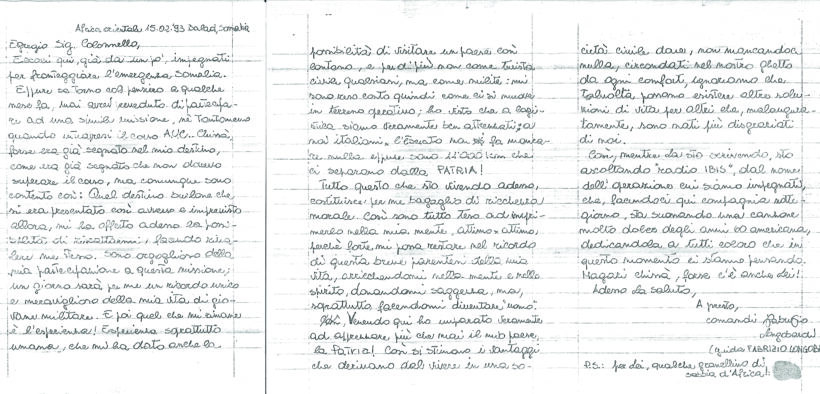 Africa orientale 15.02.'93 Balad, Somalia
Egregio Sig. Colonnello,
Eccoci qui, già da un po', impegnati
per fronteggiare l'emergenza Somalia.
Eppure se torno col pensiero a qualche
mese fa, mai avrei creduto di partecipa-
re ad una simile missione, né tantomeno
quando intrapresi il corso AUC.. Chissà,
forse era già segnato nel mio destino,
come era già segnato che non dovevo
superare il corso, ma comunque sono
contento così: Quel destino burlone che,
si era presentato così avverso e imprevisto
allora, mi ha offerto adesso la possi-
bilità di riscattarmi, facendo
me. Sono orgoglioso della
mia partecipazione a questa missione;
un giorno sarà per me un ricordo unico
e meraviglioso della mia vita di gio-
vane militare. E poi quel che mi rimane
è l'esperienza! Esperienza soprattutto
umana, che mi ha dato anche la
possibilità di visitare un paese così
lontano, e per di più non come turista
civile qualsiasi, ma come milite: mi
sono reso conto quindi come ci si muove
in terreno operativo; ho visto che a logi-
stica siamo veramente ben attrezzati; a
noi italiani.. l'Esercito non fa manca-
re nulla eppure sono 11'000 km che
ci separano dalla PATRIA!
Tutto questo che sto vivendo adesso,
costituisce per me bagaglio di ricchezza
morale. Così sono tutto teso ad impri-
merlo nella mia mente, attimo x attimo,
perché forte, mi possa restare nel ricordo
di questa breve parentesi della mia
vita, arricchendomi nella mente e nello
spirito, donandomi saggezza, ma,
soprattutto facendomi diventare "uomo".
Venendo qui ho imparato veramente
ad apprezzare più che mai il mio paese,
la PATRIA! Così si stimano i vantaggi
che derivano dal vivere in una so-
cietà civile dove, non mancandoci
nulla, circondati nel nostro ghetto
da ogni comfort, ignoriamo che
talvolta, possano esistere altre solu-
zioni di vita per altri che, malaugura-
tamente, sono nati più disgraziati
di noi.
Così, mentre Le sto scrivendo, sto
ascoltando "radio IBIS", dal nome
dell'operazione cui siamo impegnati,
che, facendoci qui compagnia notte-
giorno, sta suonando una canzone
molto dolce degli anni 60 americana,
dedicandola a tutti coloro che in
questo momento ci stanno pensando.
Magari chissà, forse c'è anche Lei!
Adesso La saluto,
A presto,
comandi Fabrizio
Longobardi
(guida FABRIZIO LONGOB
P.S.: per Lei, qualche granellino di
sabbia d'Africa!: